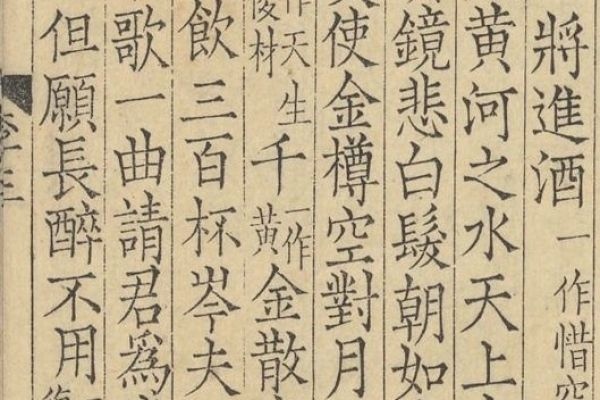 將進酒一作惜空
黃河之水天上
鏡悲白髮朝如
使金樽空對月
作天生俊材千一作黃金散
飲三百杯岑夫
歌一曲請君爲
但願長醉不用